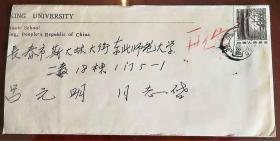 KING UNIVERSITY
School
ing, People's Republic of China
長春市斯大林大街东北师范大学
二教18栋1门5-1
吕元明 同志